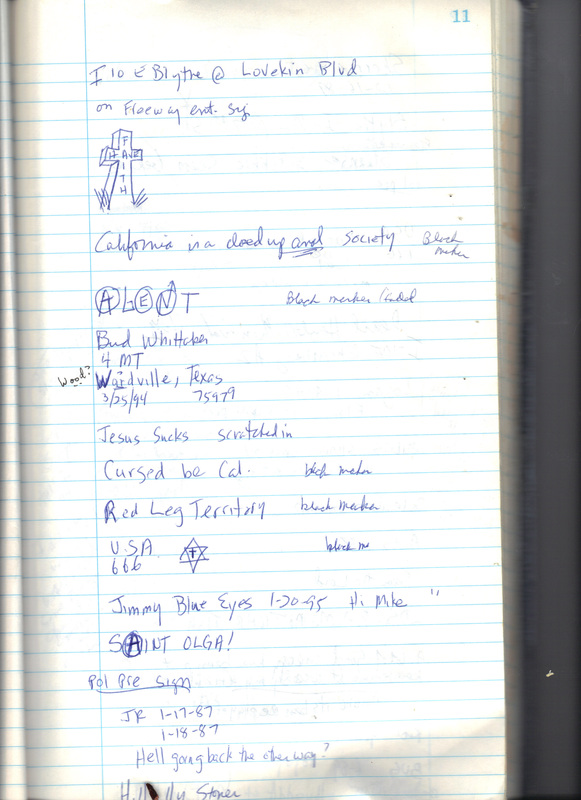 11
I 10 E Blythe @ Lovekin Blvd
on Freeway ent. Sig.
F
HAVE
I
T
H
California is a closed up and society Black marker
ALENT Black marker
Bud Whittaker
4 MT
Wood? Wardville, Texas
3/25/94 75979
Jesus Sucks scratched in
Cursed be Cal. black marker
Red Leg Territory black marker
USA
666 T black m
Jimmy Blue Eyes 1-20-95 Hi Mike "
SAINT OLGA!
Pol Pre sign
JR 1-17-87
1-18-87
Hell going back the other way?
Hillbilly Stoner